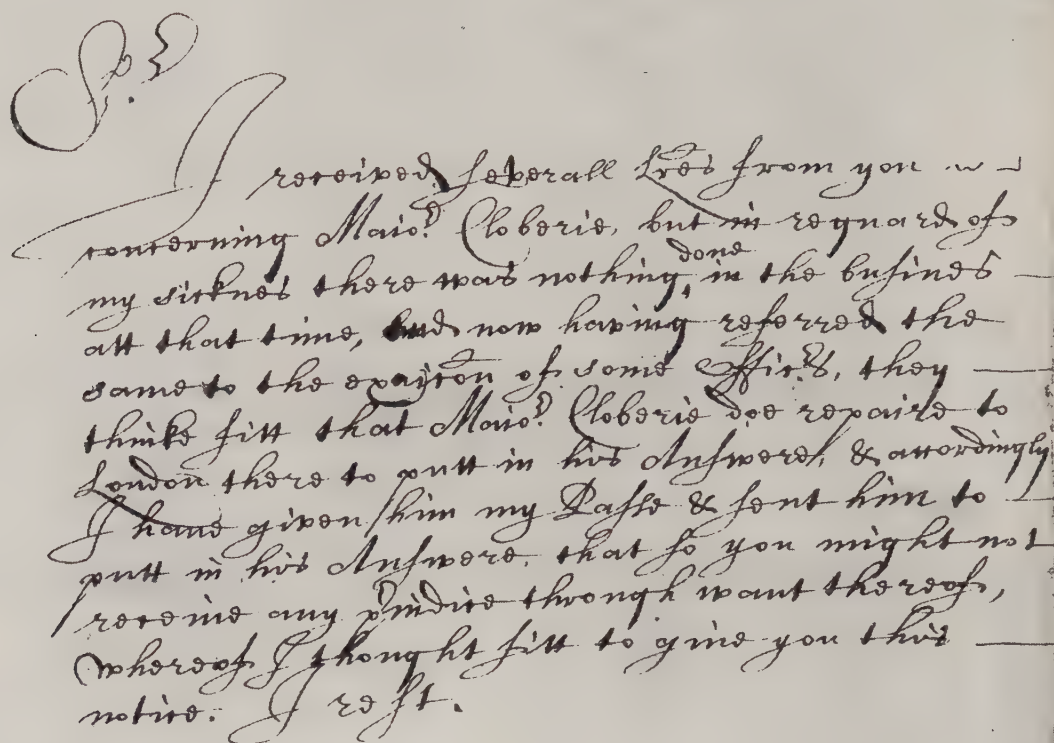 Sr.
I received severall lres from you
concerning Maior. Cloberie, but in reguard of
my sicknes there was nothing done in the busines
att that time, And now having referred the
same to the exaiĩcon of some Officrs, they
thinke fitt that Maior. Cloberie doe repaire to
London there to putt in his Answere, & accordingly
I have given him my Passe & sent him to
putt in his Answere, that so you might not
receive any pindice through want thereof,
whereof I thought fitt to give you this
notice. I rest.